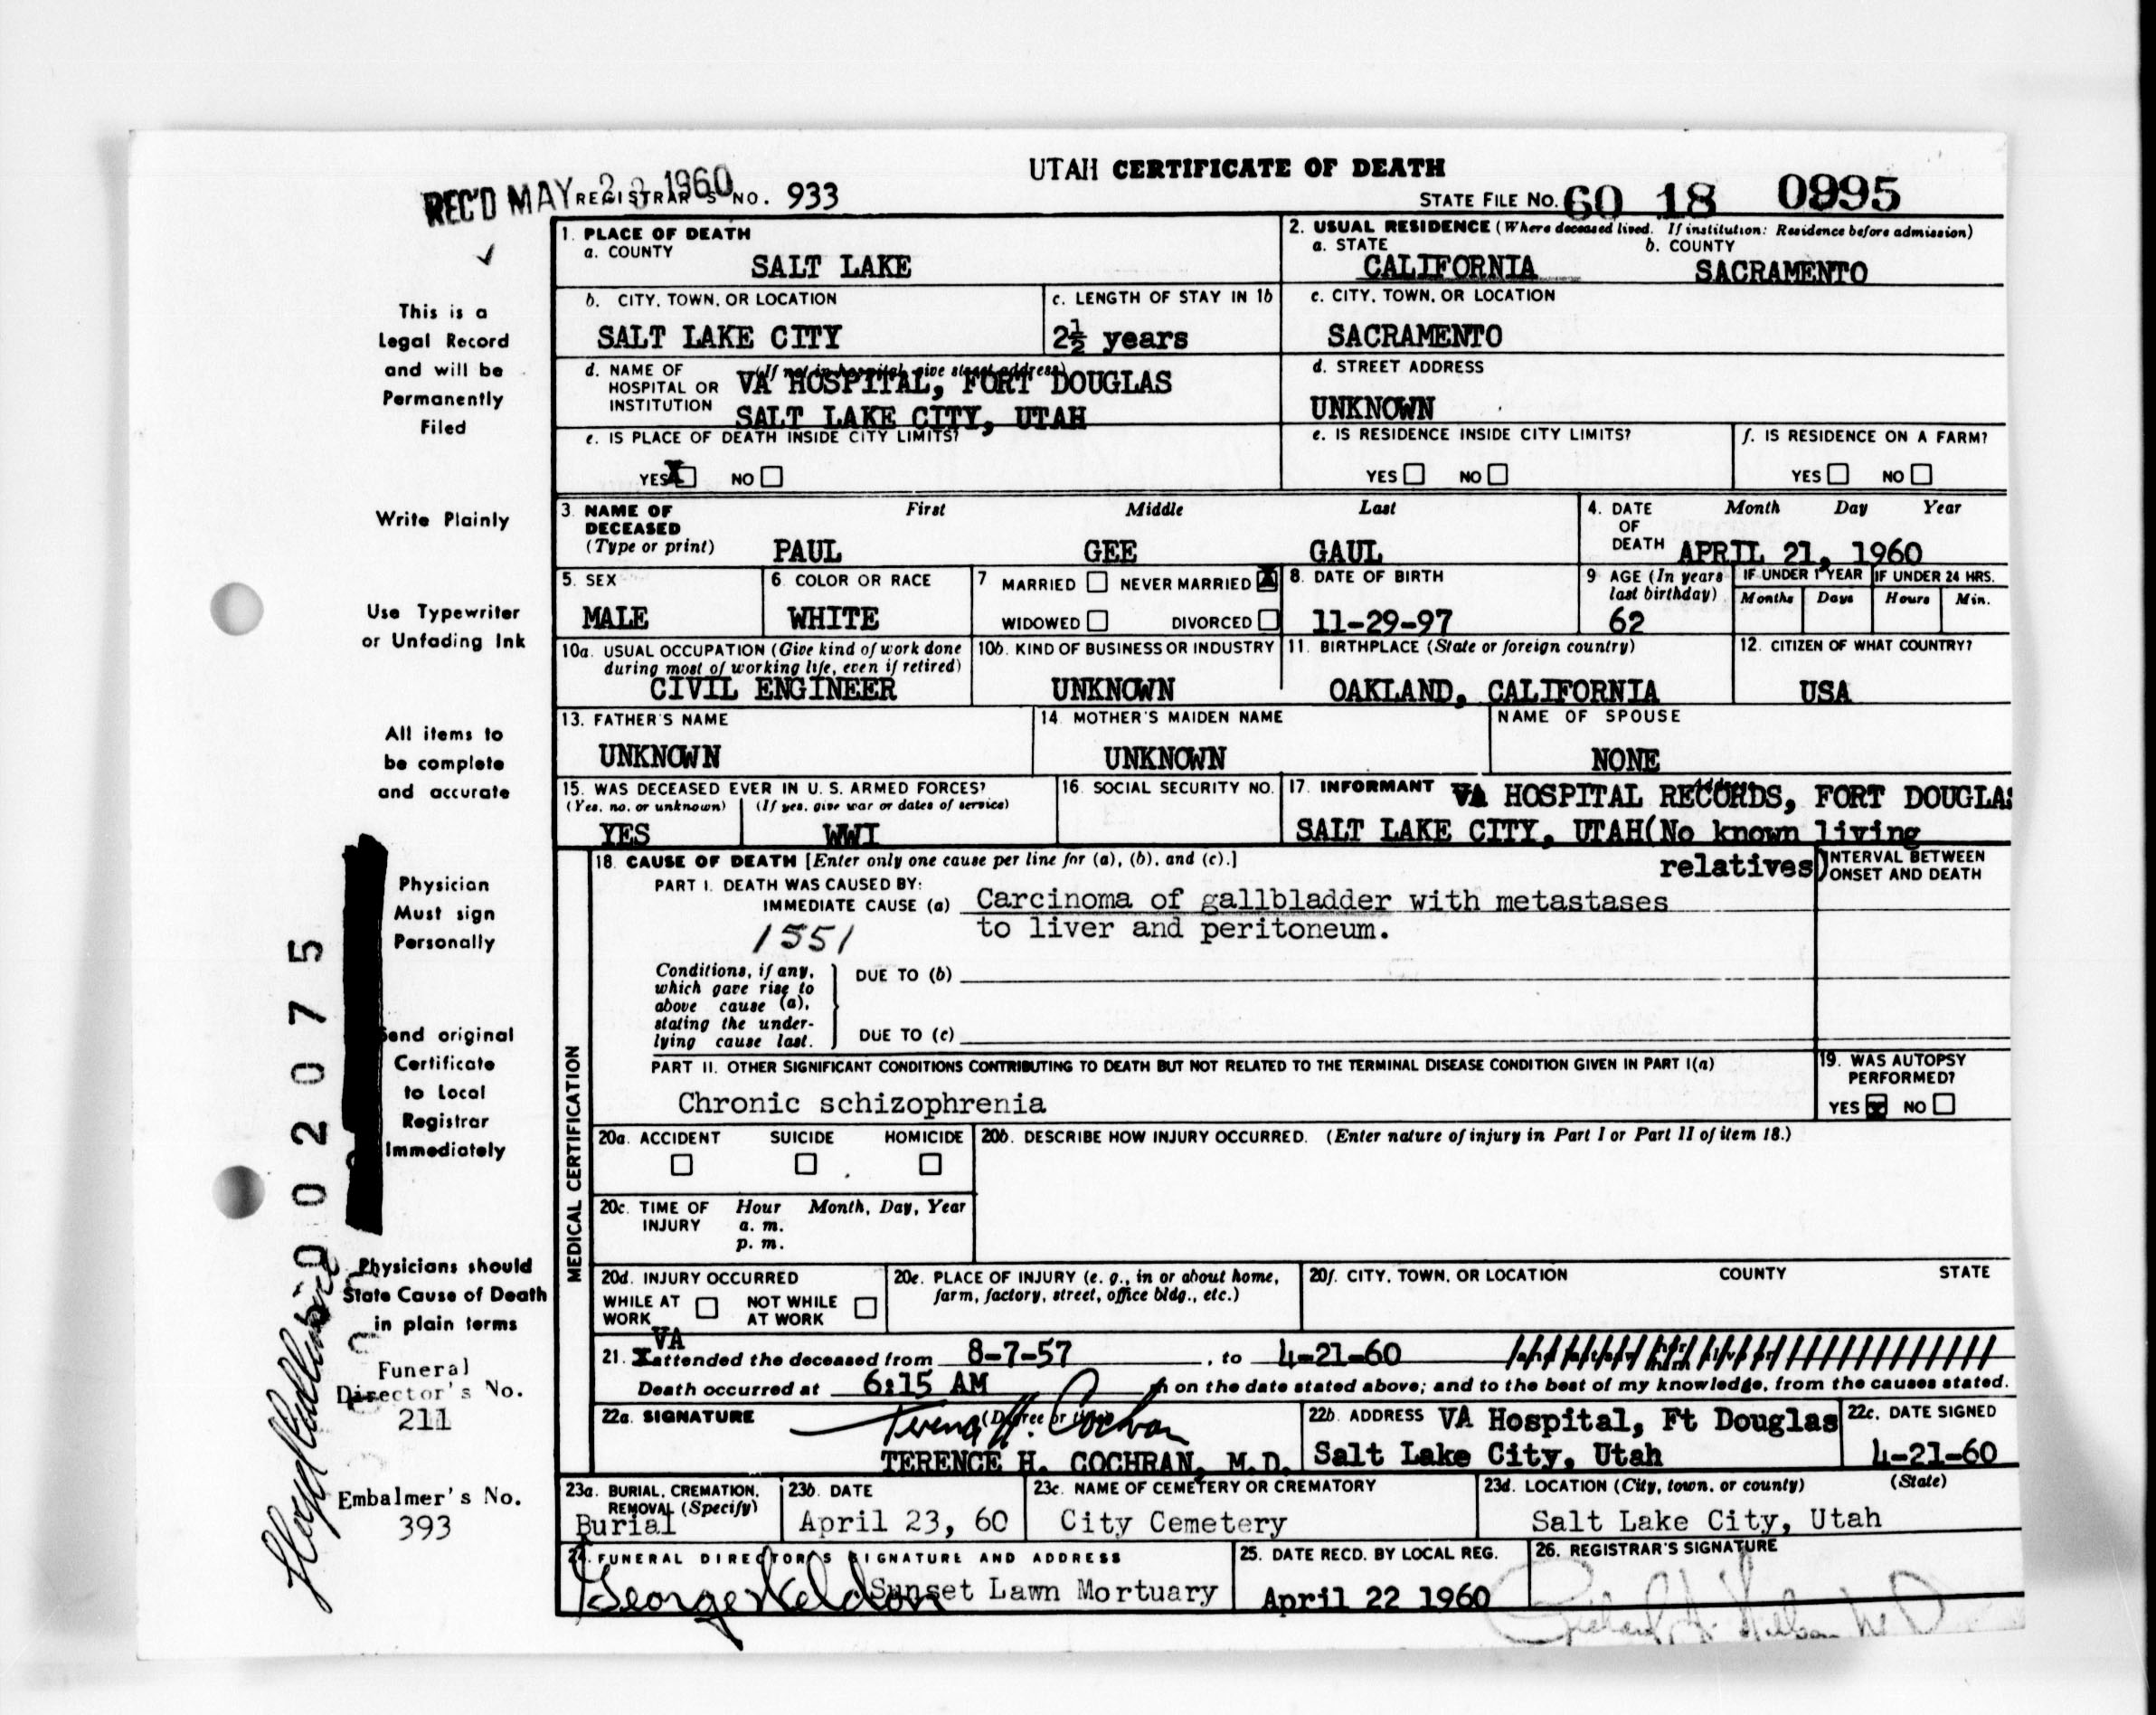 UTAH CERTIFICATE OF DEATH
REC'D MAY 1960 REGISTRAR'S NO. 933
STATE FILE NO. 60 18 0995
1. PLACE OF DEATH
a. COUNTY
SALT LAKE
2. USUAL RESIDENCE (Where deceased lived. If institution: Residence before admission)
a. STATE b. COUNTY
CALIFORNIA SACRAMENTO
b. CITY, TOWN, OR LOCATION
SALT LAKE CITY
c. LENGTH OF STAY IN 1b
2½ years
c. CITY, TOWN, OR LOCATION
SACRAMENTO
d. NAME OF HOSPITAL OR INSTITUTION (If not in hospital, give street address)
VA HOSPITAL, FORT DOUGLAS
SALT LAKE CITY, UTAH
d. STREET ADDRESS
UNKNOWN
e. IS PLACE OF DEATH INSIDE CITY LIMITS?
YES X NO
e. IS RESIDENCE INSIDE CITY LIMITS?
YES NO
f. IS RESIDENCE ON A FARM?
YES NO
3. NAME OF DECEASED (Type or print)
First Middle Last
PAUL GEE GAUL
4. DATE OF DEATH Month Day Year
APRIL 21, 1960
5. SEX
MALE
6. COLOR OR RACE
WHITE
7 MARRIED NEVER MARRIED X
WIDOWED DIVORCED
8. DATE OF BIRTH
11-29-97
9 AGE (In years last birthday)
62
IF UNDER 1 YEAR IF UNDER 24 HRS.
Months Days Hours Min.
10a. USUAL OCCUPATION (Give kind of work done during most of working life, even if retired)
CIVIL ENGINEER
10b. KIND OF BUSINESS OR INDUSTRY
UNKNOWN
11. BIRTHPLACE (State or foreign country)
OAKLAND, CALIFORNIA
12. CITIZEN OF WHAT COUNTRY?
USA
13. FATHER'S NAME
UNKNOWN
14. MOTHER'S MAIDEN NAME
UNKNOWN
NAME OF SPOUSE
NONE
15. WAS DECEASED EVER IN U. S. ARMED FORCES?
(Yes, no, or unknown) (If yes, give war or dates of service)
YES WWI
16. SOCIAL SECURITY NO.
17. INFORMANT Address
VA HOSPITAL RECORDS, FORT DOUGLAS
SALT LAKE CITY, UTAH(No known living
relatives)
MEDICAL CERTIFICATION
18. CAUSE OF DEATH [Enter only one cause per line for (a), (b), and (c).]
INTERVAL BETWEEN ONSET AND DEATH
PART I. DEATH WAS CAUSED BY:
IMMEDIATE CAUSE (a) Carcinoma of gallbladder with metastases
to liver and peritoneum.
1551
Conditions, if any, which gave rise to above cause (a), stating the underlying cause last.
DUE TO (b)
DUE TO (c)
PART II. OTHER SIGNIFICANT CONDITIONS CONTRIBUTING TO DEATH BUT NOT RELATED TO THE TERMINAL DISEASE CONDITION GIVEN IN PART I(a)
Chronic schizophrenia
19. WAS AUTOPSY PERFORMED?
YES X NO
20a. ACCIDENT SUICIDE HOMICIDE
20b. DESCRIBE HOW INJURY OCCURRED. (Enter nature of injury in Part I or Part II of item 18.)
20c. TIME OF INJURY Hour Month, Day, Year
a. m.
p. m.
20d. INJURY OCCURRED
WHILE AT WORK NOT WHILE AT WORK
20e. PLACE OF INJURY (e. g., in or about home, farm, factory, street, office bldg., etc.)
20f. CITY, TOWN, OR LOCATION COUNTY STATE
VA
21. I attended the deceased from 8-7-57, to 4-21-60
Death occurred at 6:15 AM m on the date stated above; and to the best of my knowledge, from the causes stated.
22a. SIGNATURE (Degree or title)
Terence H. Cochran
TERENCE H. COCHRAN, M.D.
22b. ADDRESS VA Hospital, Ft Douglas
Salt Lake City, Utah
22c. DATE SIGNED
4-21-60
23a. BURIAL, CREMATION, REMOVAL (Specify)
Burial
23b. DATE
April 23, 60
23c. NAME OF CEMETERY OR CREMATORY
City Cemetery
23d. LOCATION (City, town, or county) (State)
Salt Lake City, Utah
24. FUNERAL DIRECTOR'S SIGNATURE AND ADDRESS
Sunset Lawn Mortuary
25. DATE RECD. BY LOCAL REG.
April 22 1960
26. REGISTRAR'S SIGNATURE
This is a
Legal Record
and will be
Permanently
Filed
Write Plainly
Use Typewriter
or Unfading Ink
All items to
be complete
and accurate
Physician
Must sign
Personally
Send original
Certificate
to Local
Registrar
Immediately
Physicians should
State Cause of Death
in plain terms
Funeral
Director's No.
211
Embalmer's No.
393
002075